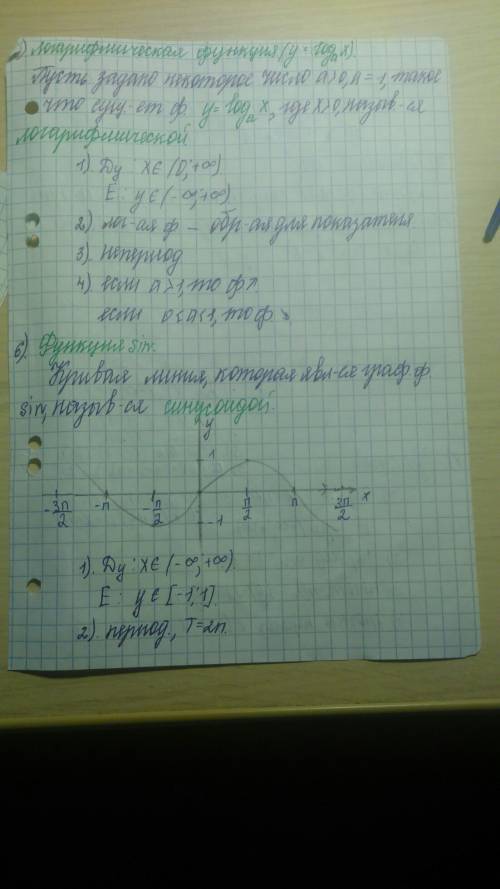 ) Логарифмическая функция (y = log_a x).
Пусть задано некоторое число a>0, a=1, такое
что сущ-ет ф. y = log_a x, где x>0, назыв-ся
логарифмической
1). Dy: x∈(0;+∞)
E: y∈(-∞;+∞)
2) лог-ая ф – обр-ая для показателя
3). непериод
4) если a>1, то ф↗
если 0<a<1, то ф↘
6). Функция sin.
Кривая линия, которая явл-ся граф. ф.
sin, назыв-ся синусоидой.
y
1
-3π/2 -π -π/2 π/2 π 3π/2 x
-1
1). Dy: x∈(-∞;+∞)
E: y∈[-1;1].
2) период., T=2π.